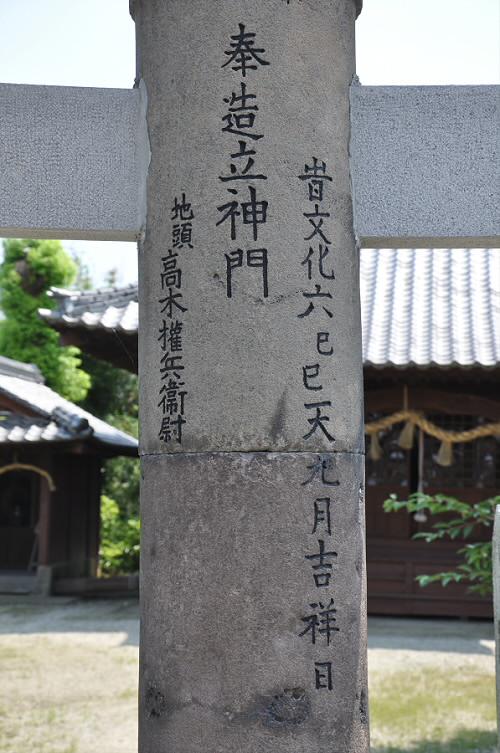 旹文化六己巳天九月吉祥日
奉造立神門
地頭高木權兵衛尉